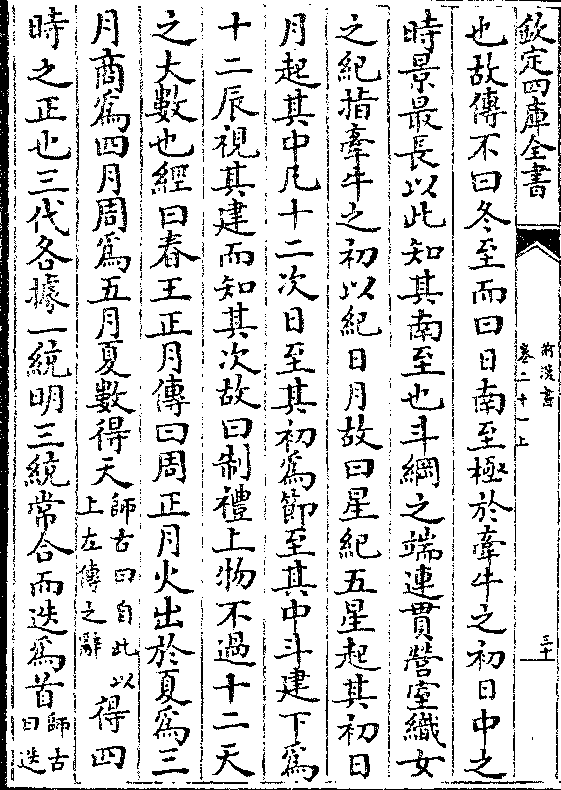 欽定四庫全書
前漢書
卷二十一上
三十
也故傳不曰冬至而曰日南至極於牽牛之初日中之
時景最長以此知其南至也斗綱之端連貫營室織女
之紀指牽牛之初以紀日月故曰星紀五星起其初日
月起其中凡十二次日至其初為節至其中斗建下為
十二辰視其建而知其次故曰制禮上物不過十二天
之大數也經曰春王正月傳曰周正月火出於夏為三
月商為四月周為五月夏數得天師古曰自此以上左傳之辭得四
時之正也三代各據一統明三統常合而迭為首師古曰迭